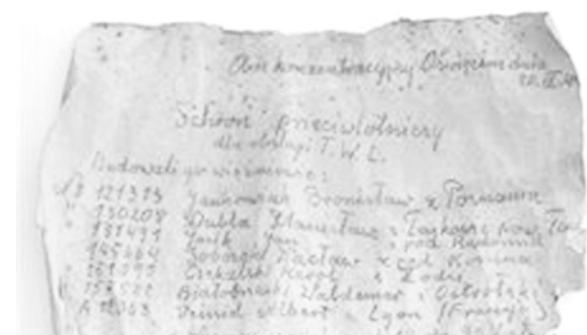 Obóz koncentracyjny Oświęcim dnia
20.IX.44
Schron przeciwlotniczy
dla obsługi T.W.L.
Budowali go więźniowie:
Nr 121313 Jankowiak Bronisław z Poznania
" 130208 Dubla Stanisław z Łaskowic pow. Tar
" 131491 Jasik Jan z pod Radomia
" 145664 Sobczak Wacław z pod Konina
" 151090 Czekalski Karol z Łodzi
" 157582 Białobrzeski Waldemar z Ostrołęki
A 12063 Veissid Albert z Lyon (Francji)